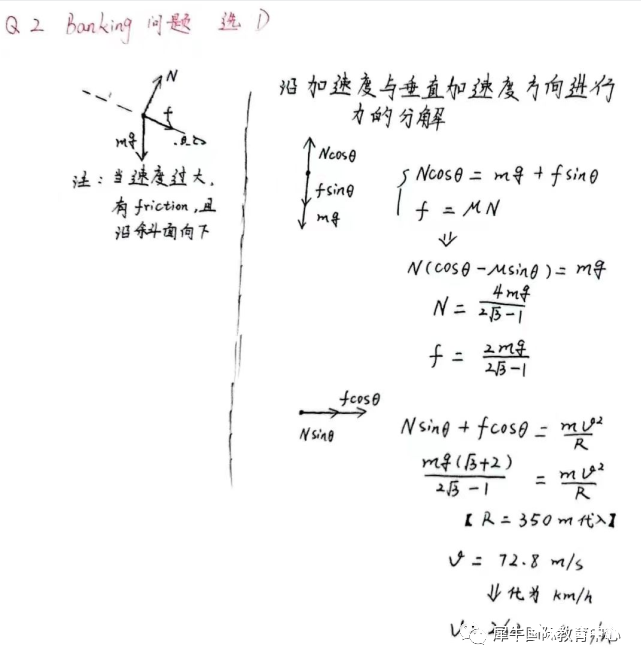 Q2 Banking 问题 选 D
N
f
mg
注：当速度过大，
有 friction，且
沿斜面向下
沿加速度与垂直加速度方向进行
力的分解
Ncosθ
fsinθ
mg
Ncosθ = mg + fsinθ
f = μN
⇓
N(cosθ - μsinθ) = mg
N = 4mg / (2√3 - 1)
f = 2mg / (2√3 - 1)
fcosθ
Nsinθ
Nsinθ + fcosθ = mv² / R
mg(√3+2) / (2√3 - 1) = mv² / R
【R = 350 m 代入】
v = 72.8 m/s
⇓ 化为 km/h
v
犀牛国际教育